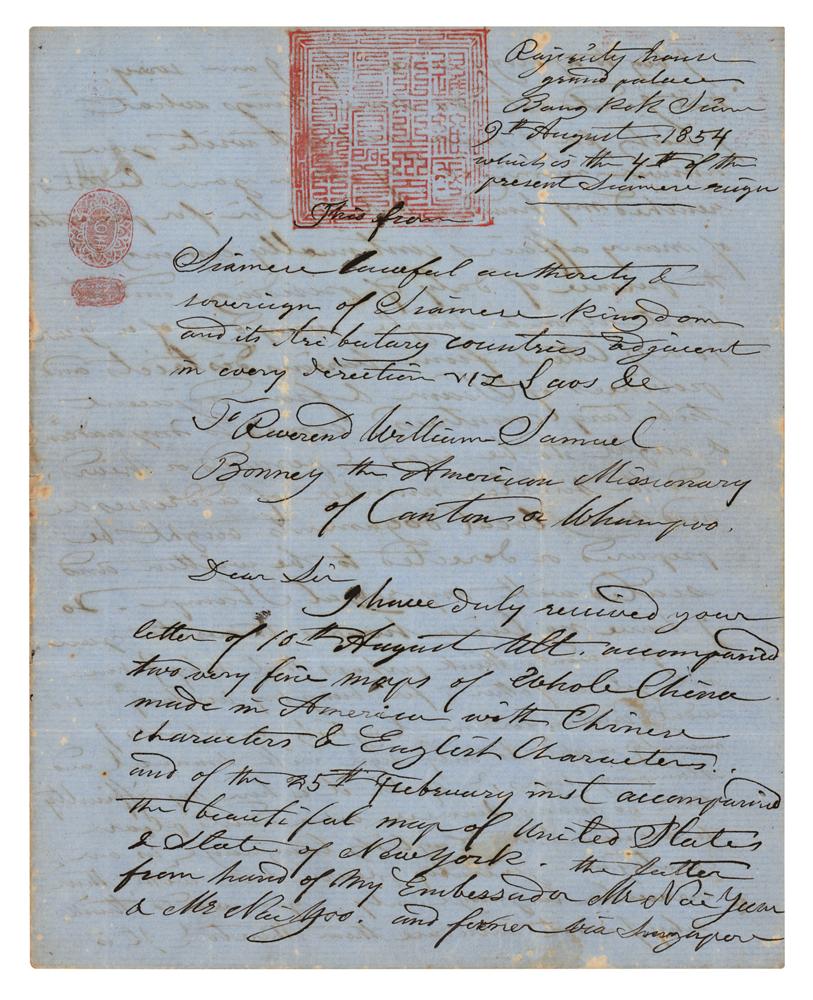 Rajesity house
grand palace
Bang kok Siam
9th August 1854
which is the 4th of the
present Siamese reign
This from
Siamese lawful authority &
sovereign of Siamese kingdom
and its tributary countries adjacent
in every direction viz Laos &c
To Reverend William Samuel
Bonney the American Missionary
of Canton or Whampoo.
Dear Sir
I have duly received your
letter of 10th August ult. accompanied
two very fine maps of Whole China
made in America with Chinese
characters & English Characters.
and of the 25th February inst accompanied
the beautiful map of United States
& State of New York. the latter
from hand of My Embassador Mr Nai
& Mr Nai and former via Singapore